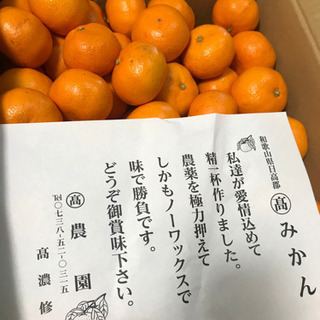 和歌山県日高郡
㊂みかん
私達が愛情込めて
精一杯作りました。
農薬を極力押えて
しかもノーワックスで
味で勝負です。
どうぞ御賞味下さい。
髙農園
℡〇七三八-五二-〇三一五
高濃修